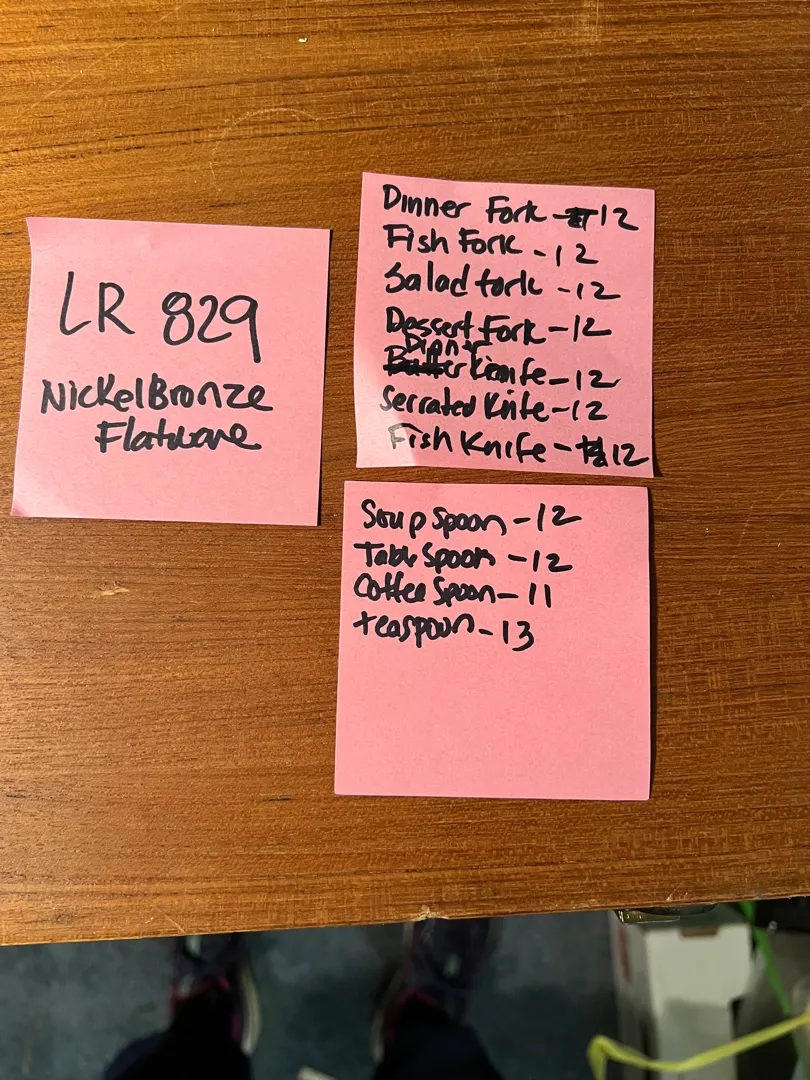 LR 829
Nickel Bronze
Flatware
Dinner Fork - 12
Fish Fork - 12
Salad fork - 12
Dessert Fork - 12
Dinner
Knife - 12
Serrated Knife - 12
Fish Knife - 12
Soup Spoon - 12
Table Spoon - 12
Coffee Spoon - 11
teaspoon - 13